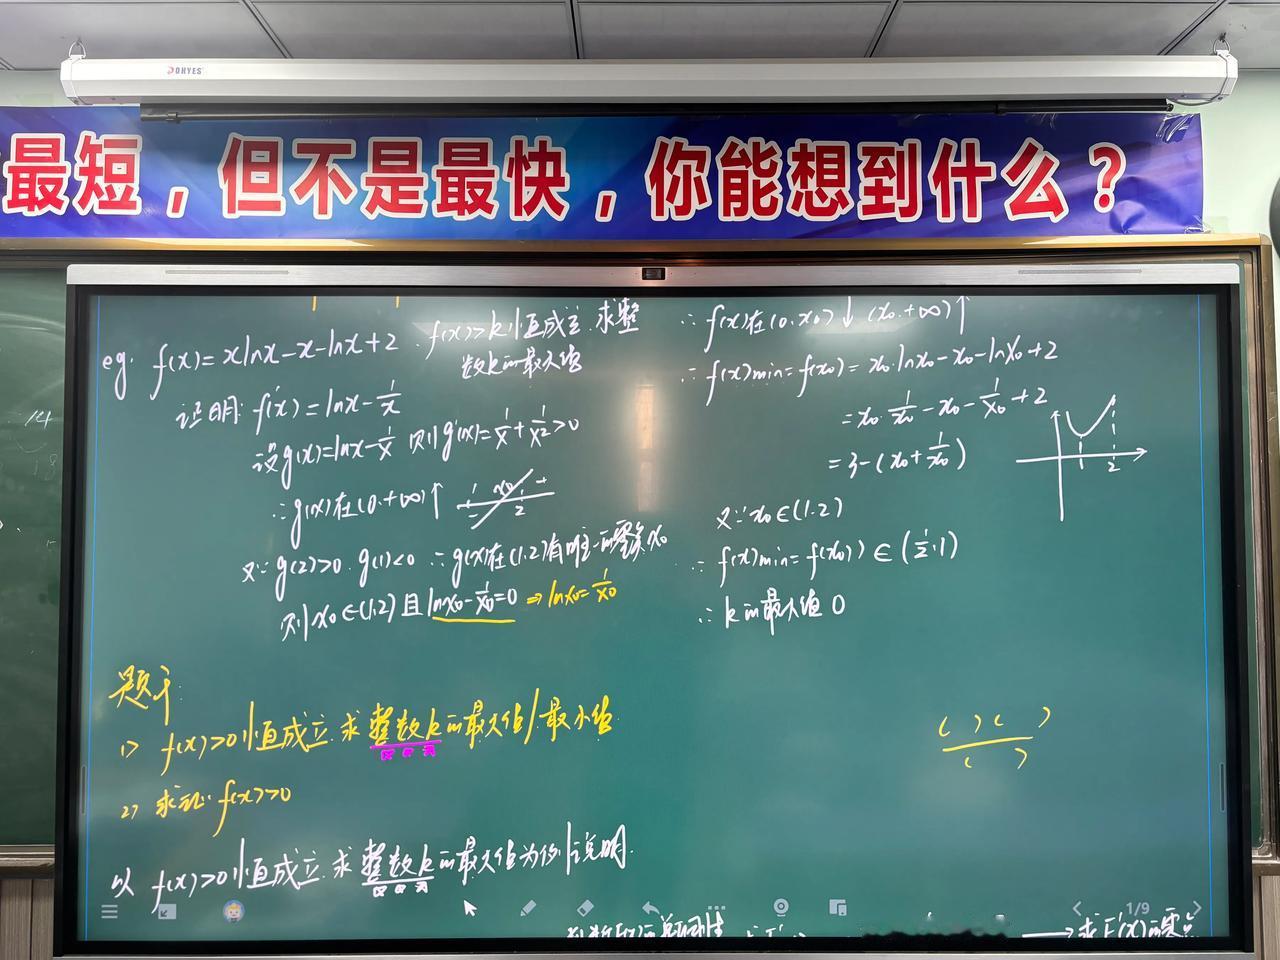 DOHYES
最短，但不是最快，你能想到什么？
eg. f(x)=xlnx-x-lnx+2. f(x)>k恒成立.求整
数k的最大值
证明: f'(x)=lnx-1/x
设g(x)=lnx-1/x 则g'(x)=1/x+1/x²>0
∴g(x)在(0,+∞)↑
1 x0 +
- 2
又∵g(2)>0. g(1)<0 ∴g(x)在(1.2)有唯一的零点x0
则x0∈(1.2)且lnx0-1/x0=0 ⇒lnx0=1/x0
∴f(x)在(0.x0)↓ (x0.+∞)↑
∴f(x)min=f(x0)=x0·lnx0-x0-lnx0+2
=x0·1/x0-x0-1/x0+2
=3-(x0+1/x0)
1 2
又∵x0∈(1.2)
∴f(x)min=f(x0)∈(1/2.1)
∴k的最大值 0
题干:
1) f(x)>0恒成立.求整数k的最大值/最小值
2) 求证: f(x)>0
( )( )
( )
以 f(x)>0恒成立.求整数k的最大值为例说明.
1/9
→求F(x)的零点